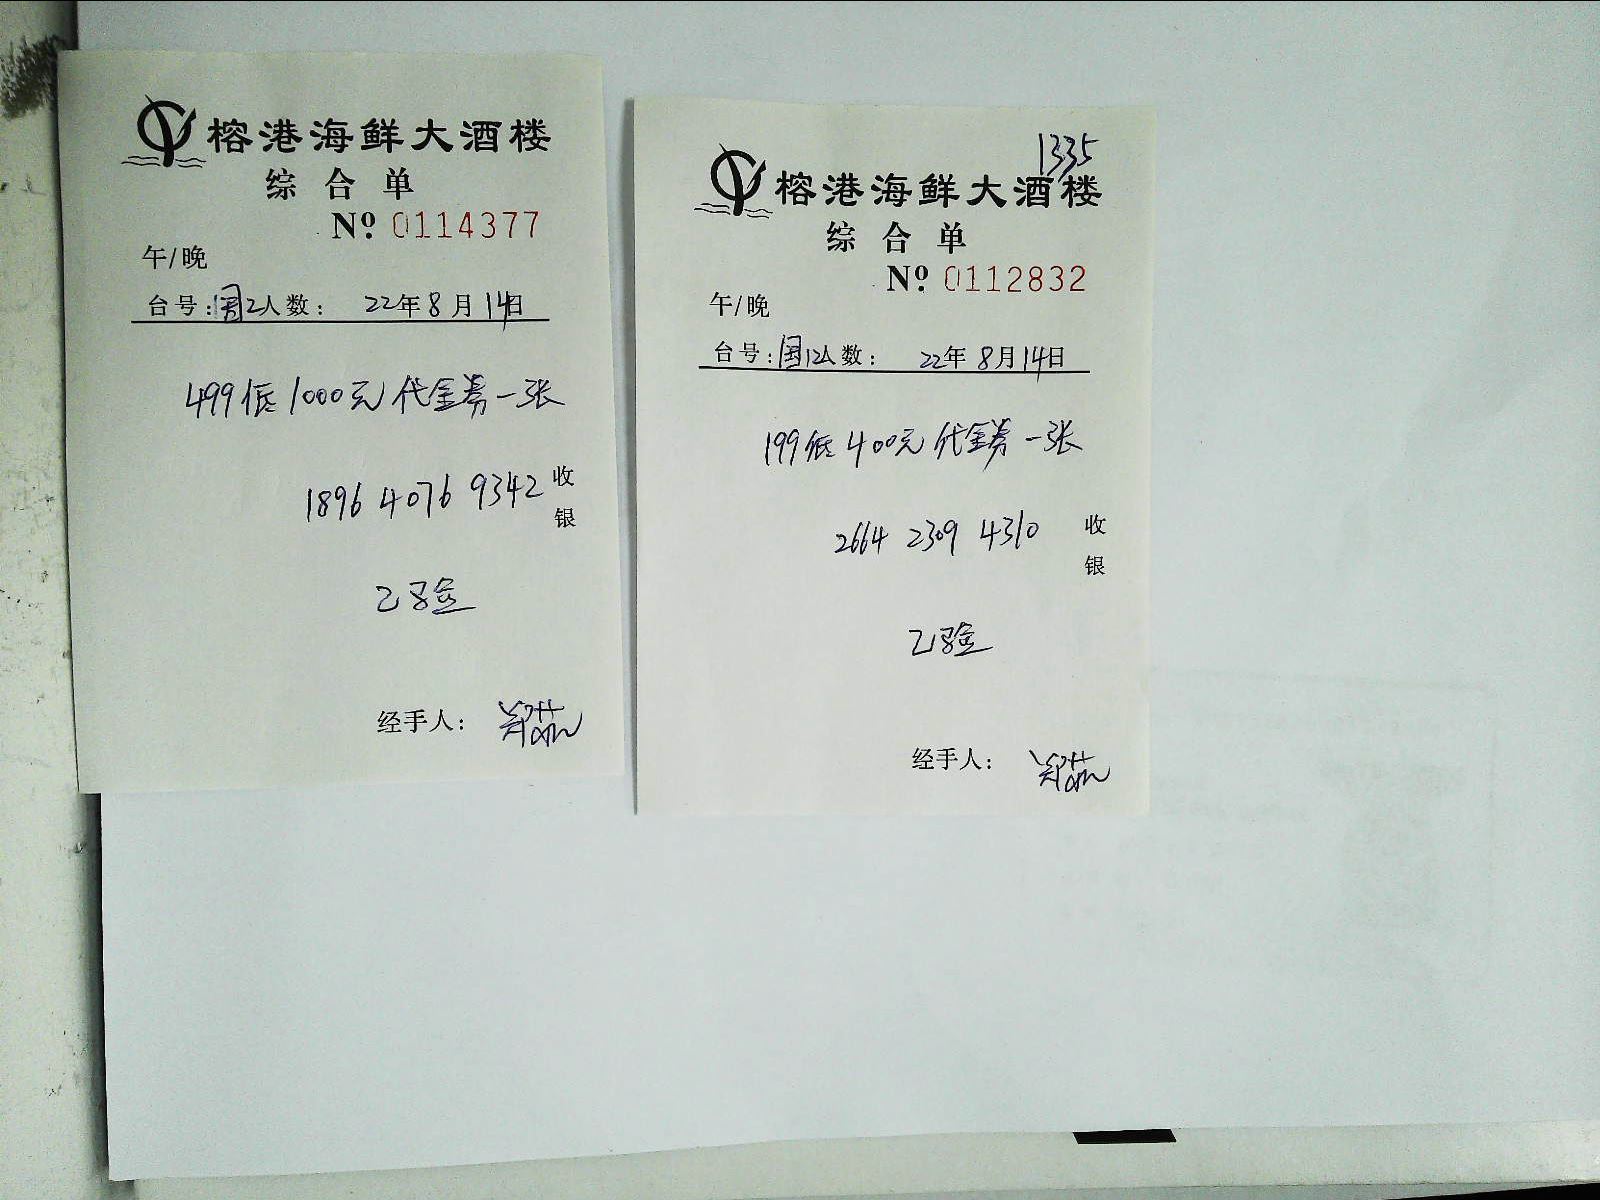 榕港海鲜大酒楼
综合单
Nº 0114377
午/晚
台号:国2人数: 22年8月14日
499低1000元代金券一张
1896 4076 9342
收银
已验
经手人: 郑茹
1335
榕港海鲜大酒楼
综合单
Nº 0112832
午/晚
台号:国12人数: 22年8月14日
199低400元代金券一张
2664 2309 4310
收银
已验
经手人: 郑茹